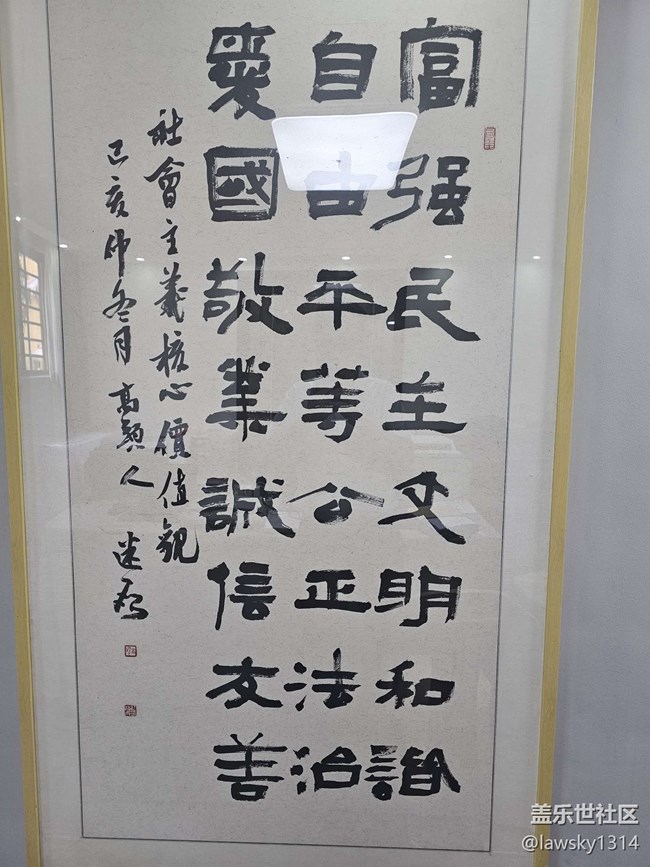 富强民主文明和諧
自由平等公正法治
愛國敬業誠信友善
社會主義核心價值觀
己亥仲冬月高顥人
盖乐世社区
@lawsky1314